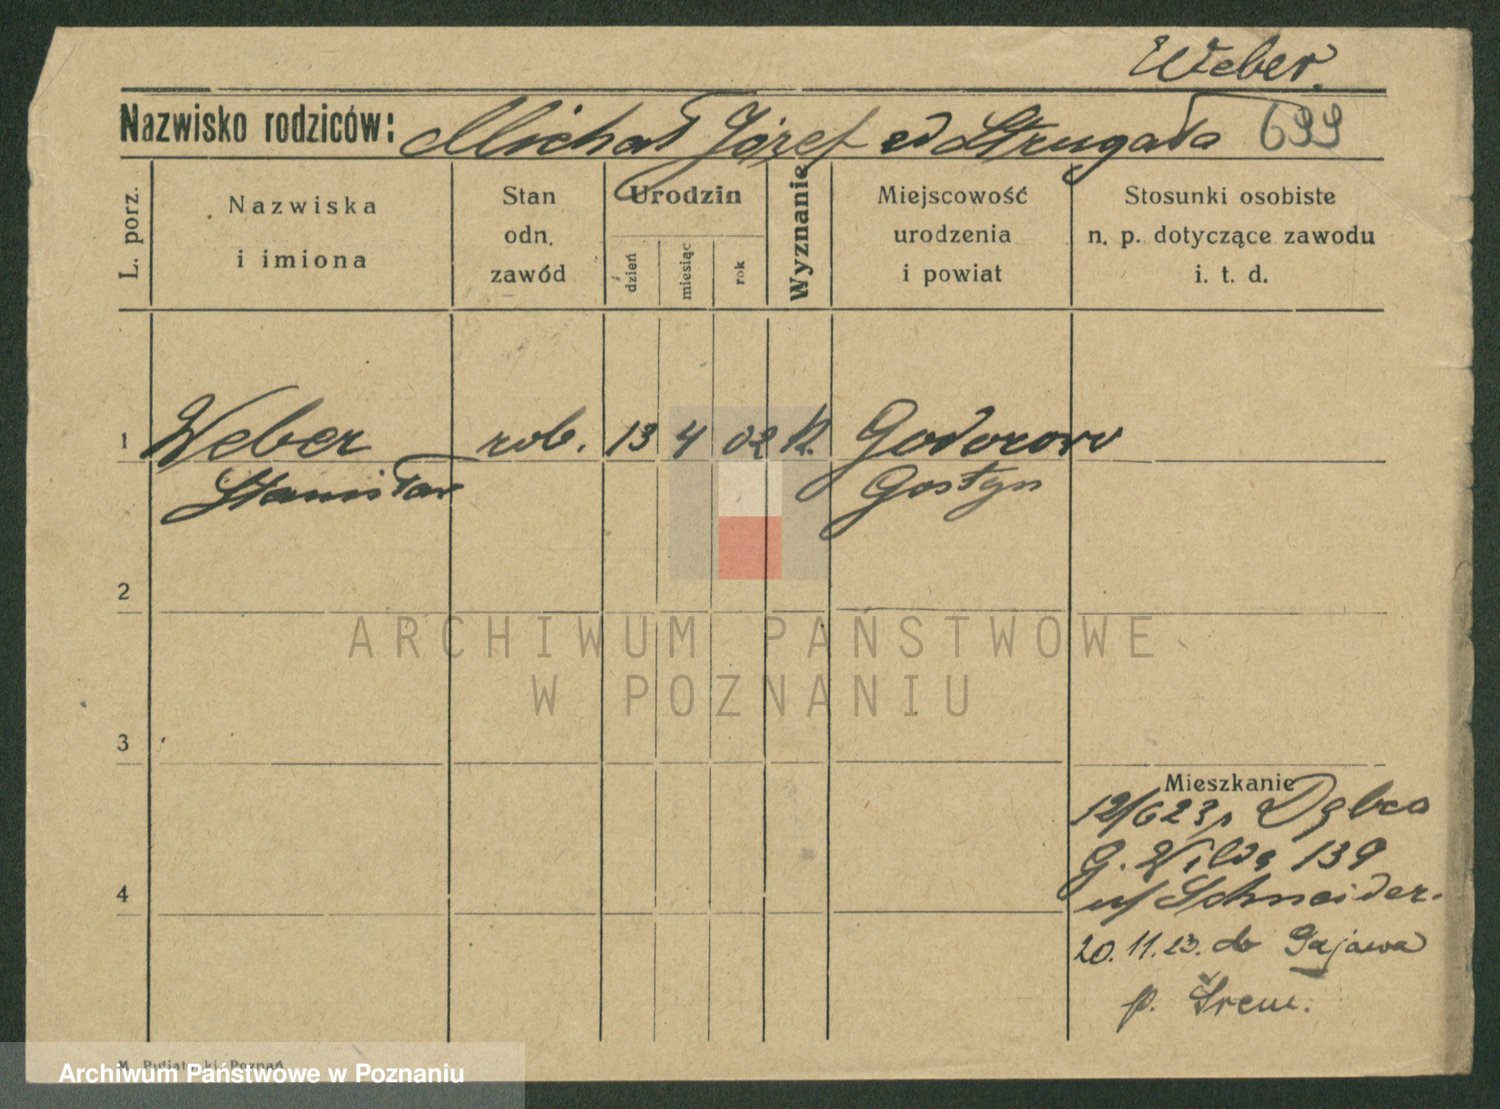 Weber.
Nazwisko rodziców: Michał Józef Strugała 699
L. porz.
Nazwiska
i imiona
Stan
odn.
zawód
Urodzin
dzień
miesiąc
rok
Wyznanie
Miejscowość
urodzenia
i powiat
Stosunki osobiste
n. p. dotyczące zawodu
i. t. d.
1 Weber rob. 13 4 02 K.
Stanisław Gostyn
2
ARCHIWUM PAŃSTWOWE
W POZNANIU
3
Mieszkanie
12/6 23 Dębca
G. Wilda 139
Schneider.
20.11.23. do Gajewa
p. Śrem.
4
Poznań
Archiwum Państwowe w Poznaniu